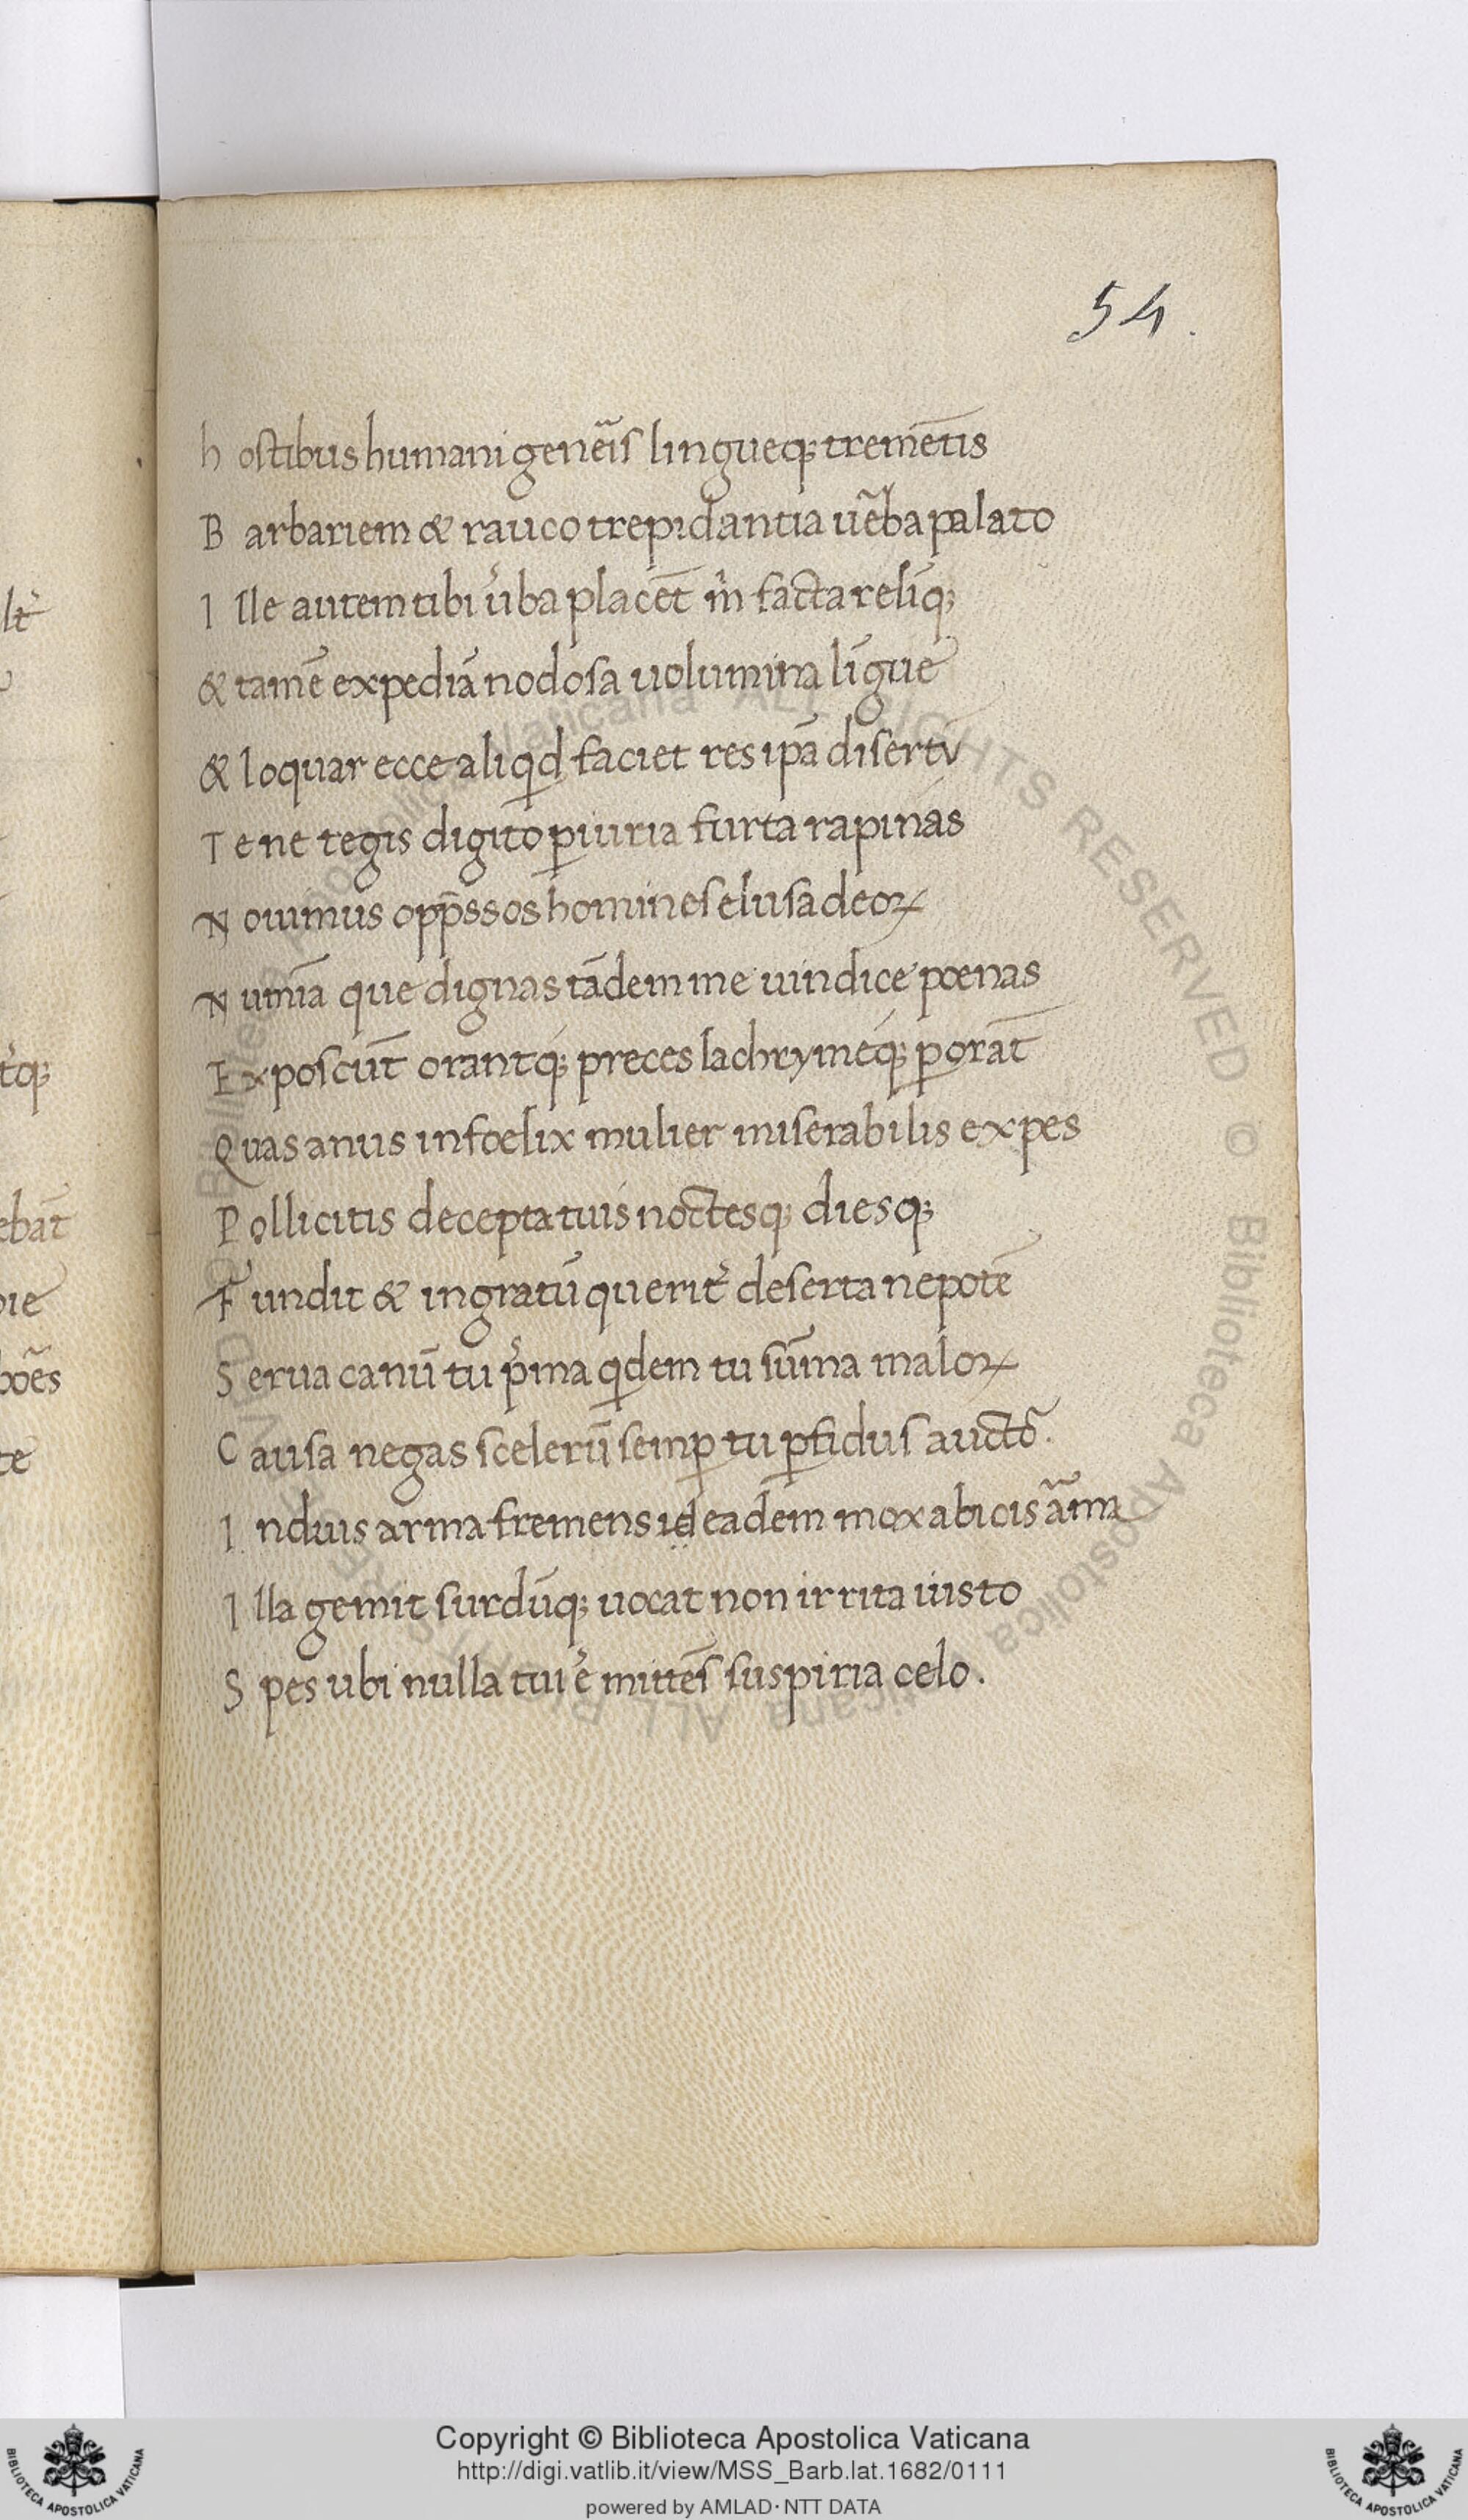 54.
hostibus humani geñeis lingueq; tremētis
Barbariem & rauco trepidantia uẽba palato
Ille autem tibi u̓ba placēt m̓ facta relīq;
& tamē expediā nodosa uolumina līgue
& loquar ecce aliqd faciet res ipā disertū
Te ne tegis digito ꝑiuria furta rapinas
Nouimus opp̄ssos homines elusa deoꝝ
Numīa que dignas tādem me uindice poenas
Exposcūt orantq; preces lachrymeq; ꝑorāt
Quas anus infoelix mulier miserabilis expes
Pollicitis decepta tuis noctesq; diesq;
Fundit & ingratū querit̓ deserta nepotē
Serua canū tu p̓ma qdem tu sūma maloꝝ
Causa negas scelerū semꝑ tu ꝑfidus auctõ.
Induis arma fremens id eadem mox abicis ãma
Illa gemit surdūq; uocat non irrita iusto
Spes ubi nulla tui ē mittēs suspiria celo.
lt̓
t̓q;
ebāt
oie
boēs
te
Biblioteca Apostolica Vaticana ALL RIGHTS RESERVED ©
Copyright © Biblioteca Apostolica Vaticana
http://digi.vatlib.it/view/MSS_Barb.lat.1682/0111
powered by AMLAD·NTT DATA
BIBLIOTECA APOSTOLICA VATICANA
BIBLIOTECA APOSTOLICA VATICANA